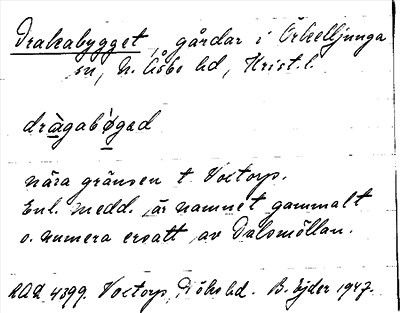 Drakabygget, gårdar i Örkelljunga
sn, N. Åsbo hd, Krist. l.
dràgabÿ́gad
nära gränsen t. Voxtorp.
Enl. medd. är namnet gammalt
o. numera ersatt av Dalsmöllan.
4399. Voxtorp, Höks hd. B. Ejder 1947.